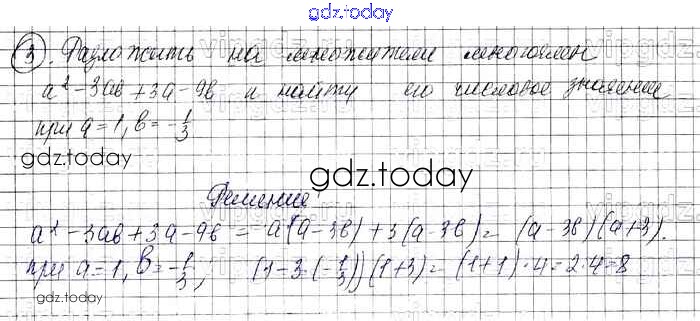 gdz.today
3. Разложить на множители многочлен
a² - 3ab + 3a - 9b и найти его числовое значение
при a = 1, b = -1/3
gdz.today
gdz.today
Решение:
a² - 3ab + 3a - 9b = a(a - 3b) + 3(a - 3b) = (a - 3b)(a + 3).
при a = 1, b = -1/3; (1 - 3·(-1/3))(1 + 3) = (1 + 1)·4 = 2·4 = 8
gdz.today